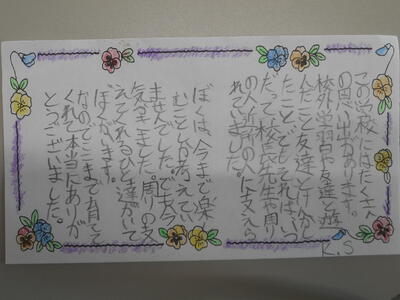 この学校にはたくさん
の思い出があります。
校外学習や友達と遊
んだこと友達とけんかし
たこと、でもそれは、いつ
だって校長先生や周り
の人、近所の人に支えら
れていました。
ぼくは、今まで楽
むことしか考えてい
ませんでした。でも今
気づきました。周りの支
えてくれるひと達がいて
ぼくがいます。
なのでここまで育てて
くれて本当にありが
とうございました。
K.S